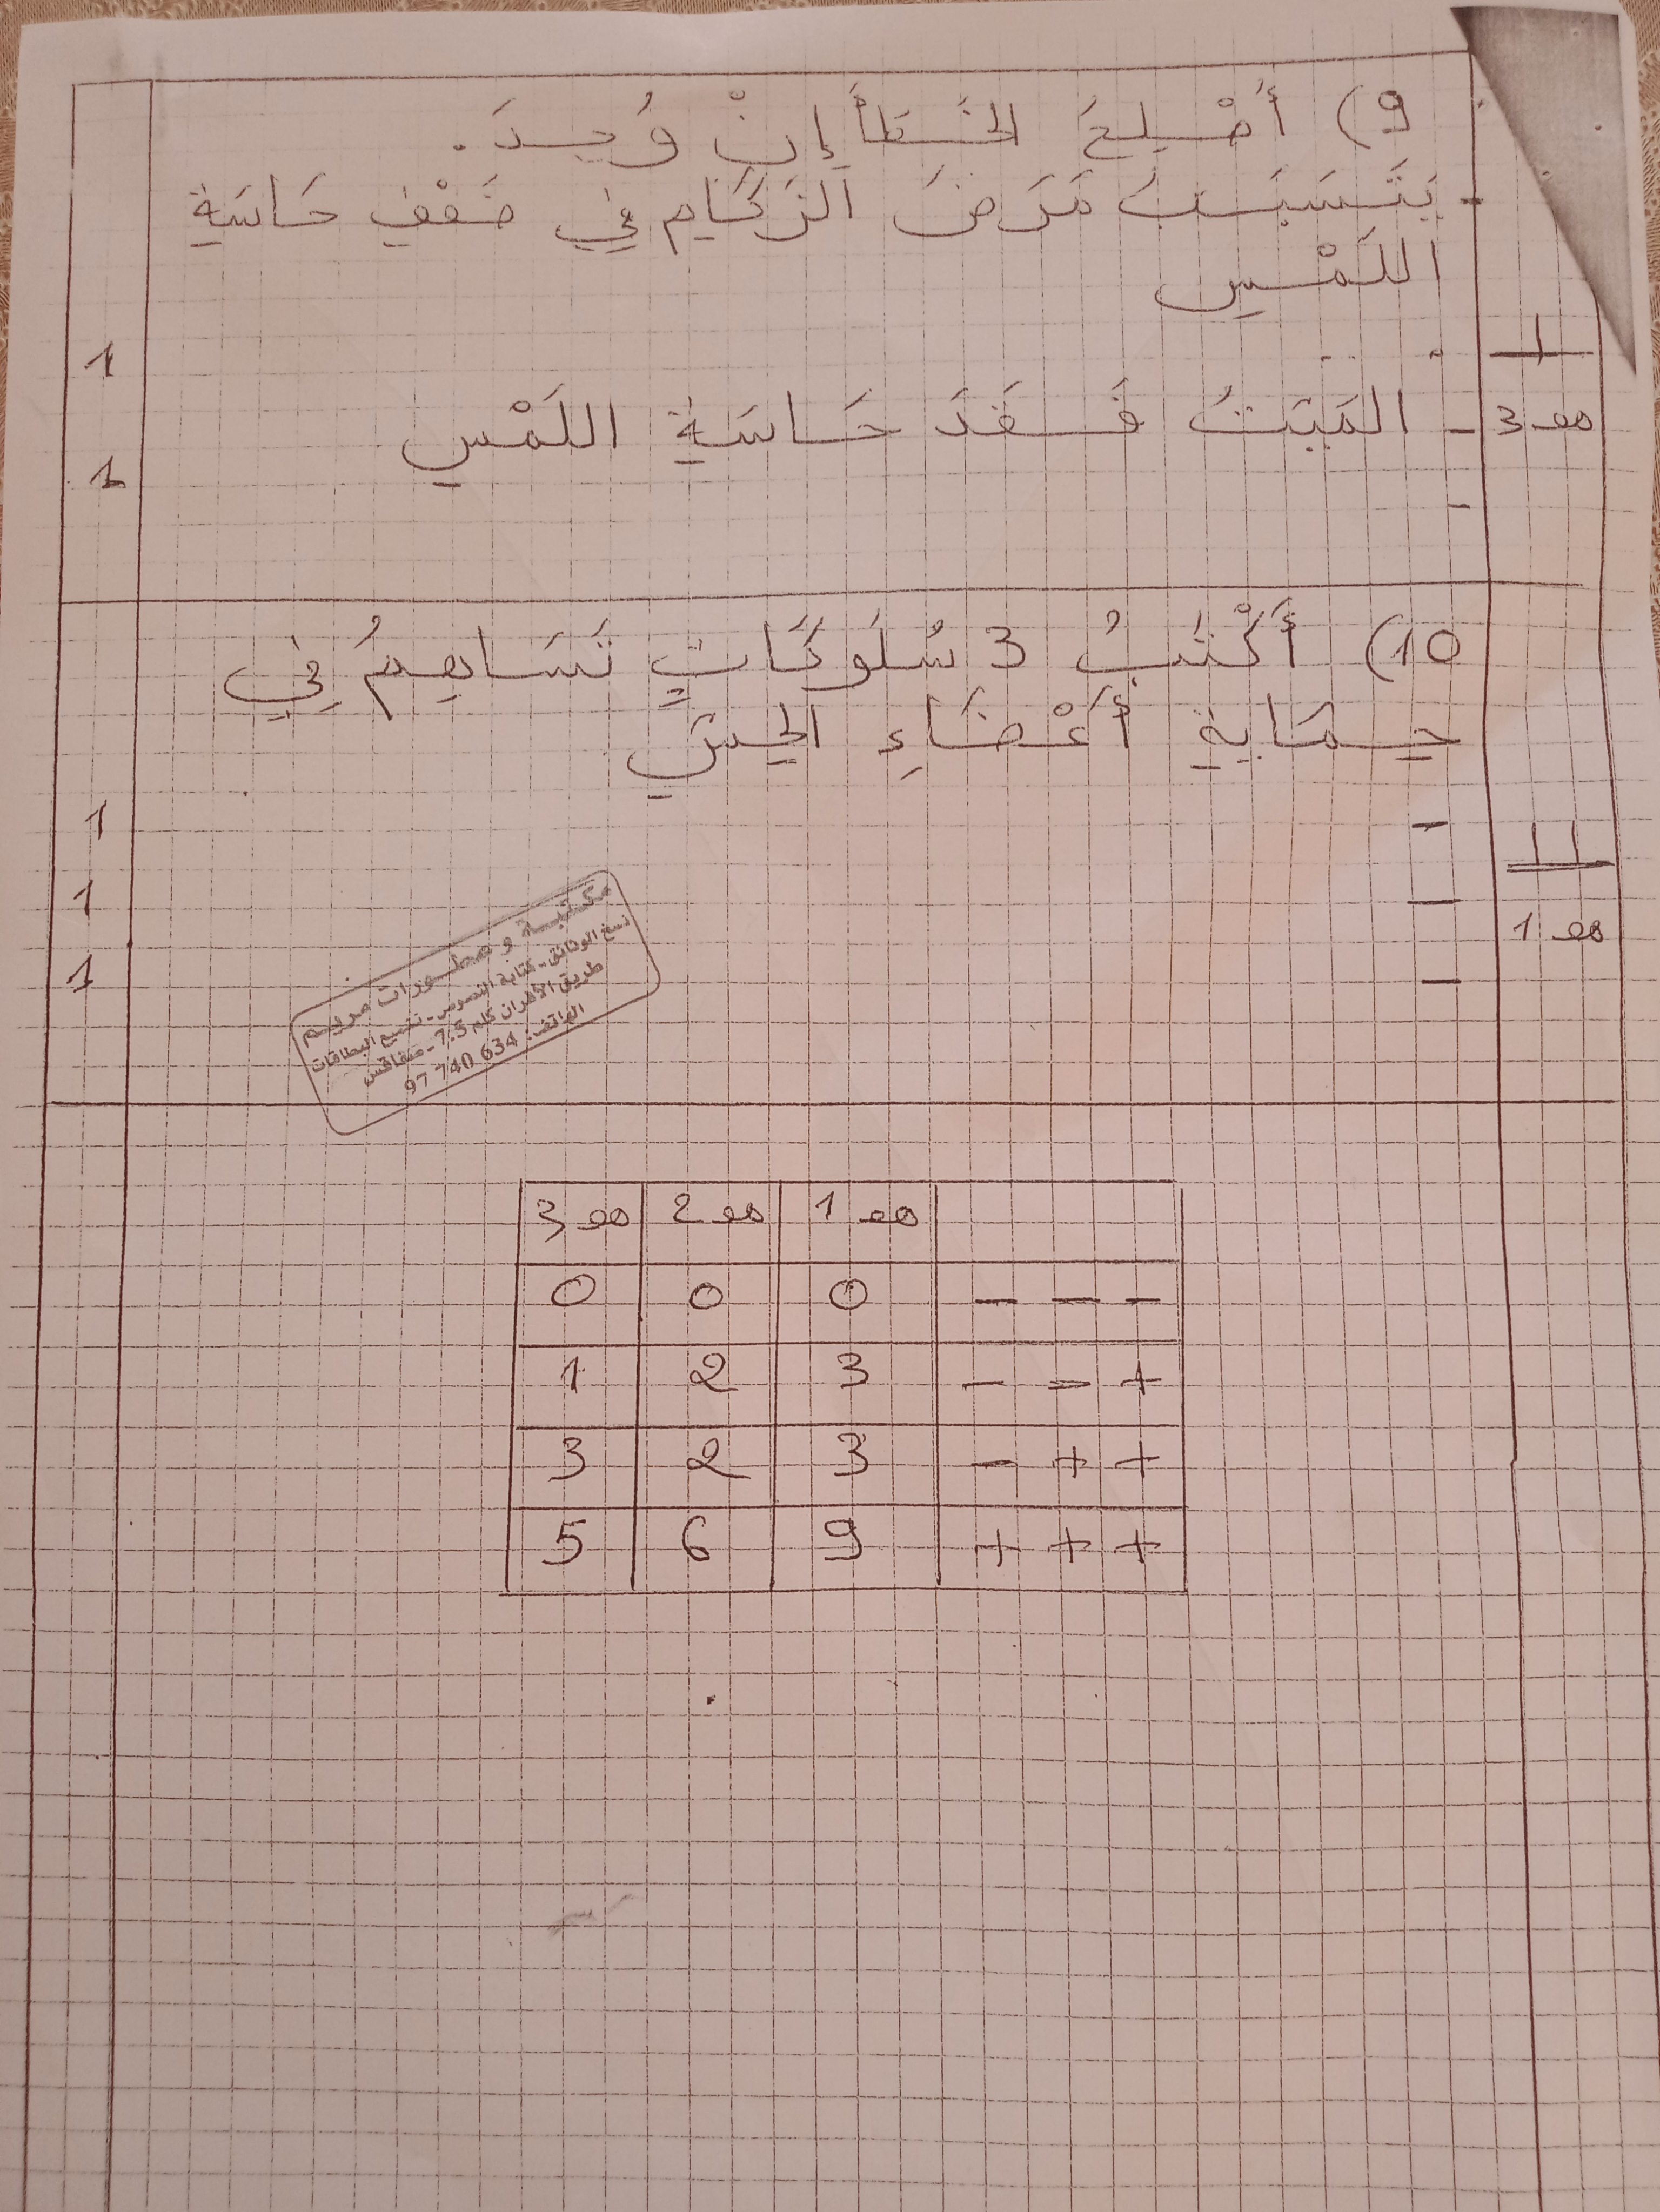 9) أَصْلِحُ الخَطَأَ إِنْ وُجِدَ .
- يَتَسَبَّبُ مَرَضُ الزُّكَامِ فِي ضَعْفِ حَاسَّةِ
اللَّمْسِ
1
1
- المَيِّتُ فَقَدَ حَاسَّةَ اللَّمْسِ
مع 3
1
-
10) أَكْتُبُ 3 سُلُوكَاتٍ تُسَاهِمُ فِي
حِمَايَةِ أَعْضَاءِ الحِسِّ
1 -
11
1 -
مع 1
1 -
مكتبة و مطبوعات مريم
نسخ الوثائق - كتابة النصوص - تلصيق البطاقات
طريق الأفران كلم 7.5 - صفاقس
الهاتف: 97 740 634
مع 1 مع 2 مع 3
- - - 0 0 0
+ - - 3 2 1
+ + - 3 2 3
+ + + 9 6 5